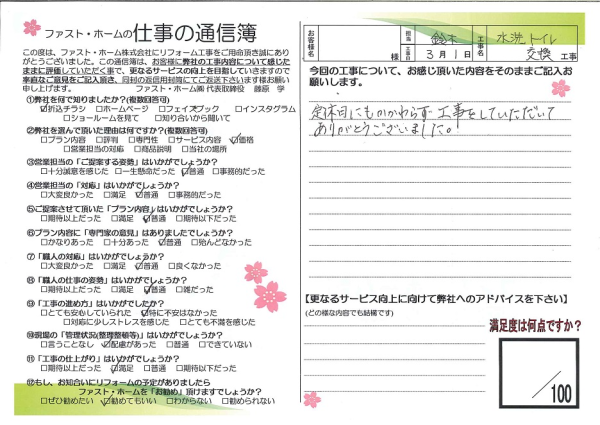 ファスト・ホームの仕事の通信簿
この度は、ファスト・ホーム株式会社にリフォーム工事をご用命頂き誠にあり
がとうございました。この通信簿は、お客様に弊社の工事内容について感じた
ままに評価していただく事で、更なるサービスの向上を目指していきますので
率直なご意見をご記入頂き、同封の返信用封筒にてご返送下さいます様お願い
申し上げます。
ファスト・ホーム㈱ 代表取締役 藤原 学
①弊社を何で知りましたか?(複数回答可)
☑折込チラシ □ホームページ □フェイスブック □インスタグラム
□ショールームを見て □知り合いから聞いて
②弊社を選んで頂いた理由は何ですか?(複数回答可)
□プラン内容 □評判 □専門性 □サービス内容 ☑価格
□営業担当の対応 □商品説明 □当社の場所
③営業担当の「ご提案する姿勢」はいかがでしょうか?
□十分誠意を感じた □一生懸命だった ☑普通 □事務的だった
④営業担当の「対応」はいかがでしょうか?
□大変良かった □満足 ☑普通 □事務的だった
⑤ご提案させて頂いた「プラン内容」はいかがでしょうか?
□期待以上だった □満足 ☑普通 □期待以下だった
⑥プラン内容に「専門家の意見」はありましたでしょうか?
□かなりあった □十分あった ☑普通 □殆んどなかった
⑦「職人の対応」はいかがでしょうか?
□大変良かった □満足 ☑普通 □良くなかった
⑧「職人の仕事の姿勢」はいかがでしょうか?
□期待以上だった □満足 ☑普通 □雑だった
⑨「工事の進め方」はいかがでしょうか?
□とても安心していられた ☑特に不安はなかった
□対応に少しストレスを感じた □とても不満を感じた
⑩現場の「管理状況(整理整頓等)」はいかがでしょうか?
□言うことなし ☑配慮があった □普通 □できていない
⑪「工事の仕上がり」はいかがでしょうか?
□期待以上だった ☑満足 □普通 □期待以下だった
⑫もし、お知合いにリフォームの予定がありましたら
ファスト・ホームを「お勧め」頂けますでしょうか?
□ぜひ勧めたい ☑勧めてもいい □わからない □勧められない
お客様名 様 担当 鈴木 工事日 3月1日 工事名 水洗トイレ交換 工事
今回の工事について、お感じ頂いた内容をそのままご記入お
願いします。
定休日にもかかわらず工事をしていただいて
ありがとうございました。!
【更なるサービス向上に向けて弊社へのアドバイスを下さい】
(どの様な内容でも結構です)
満足度は何点ですか?
/100